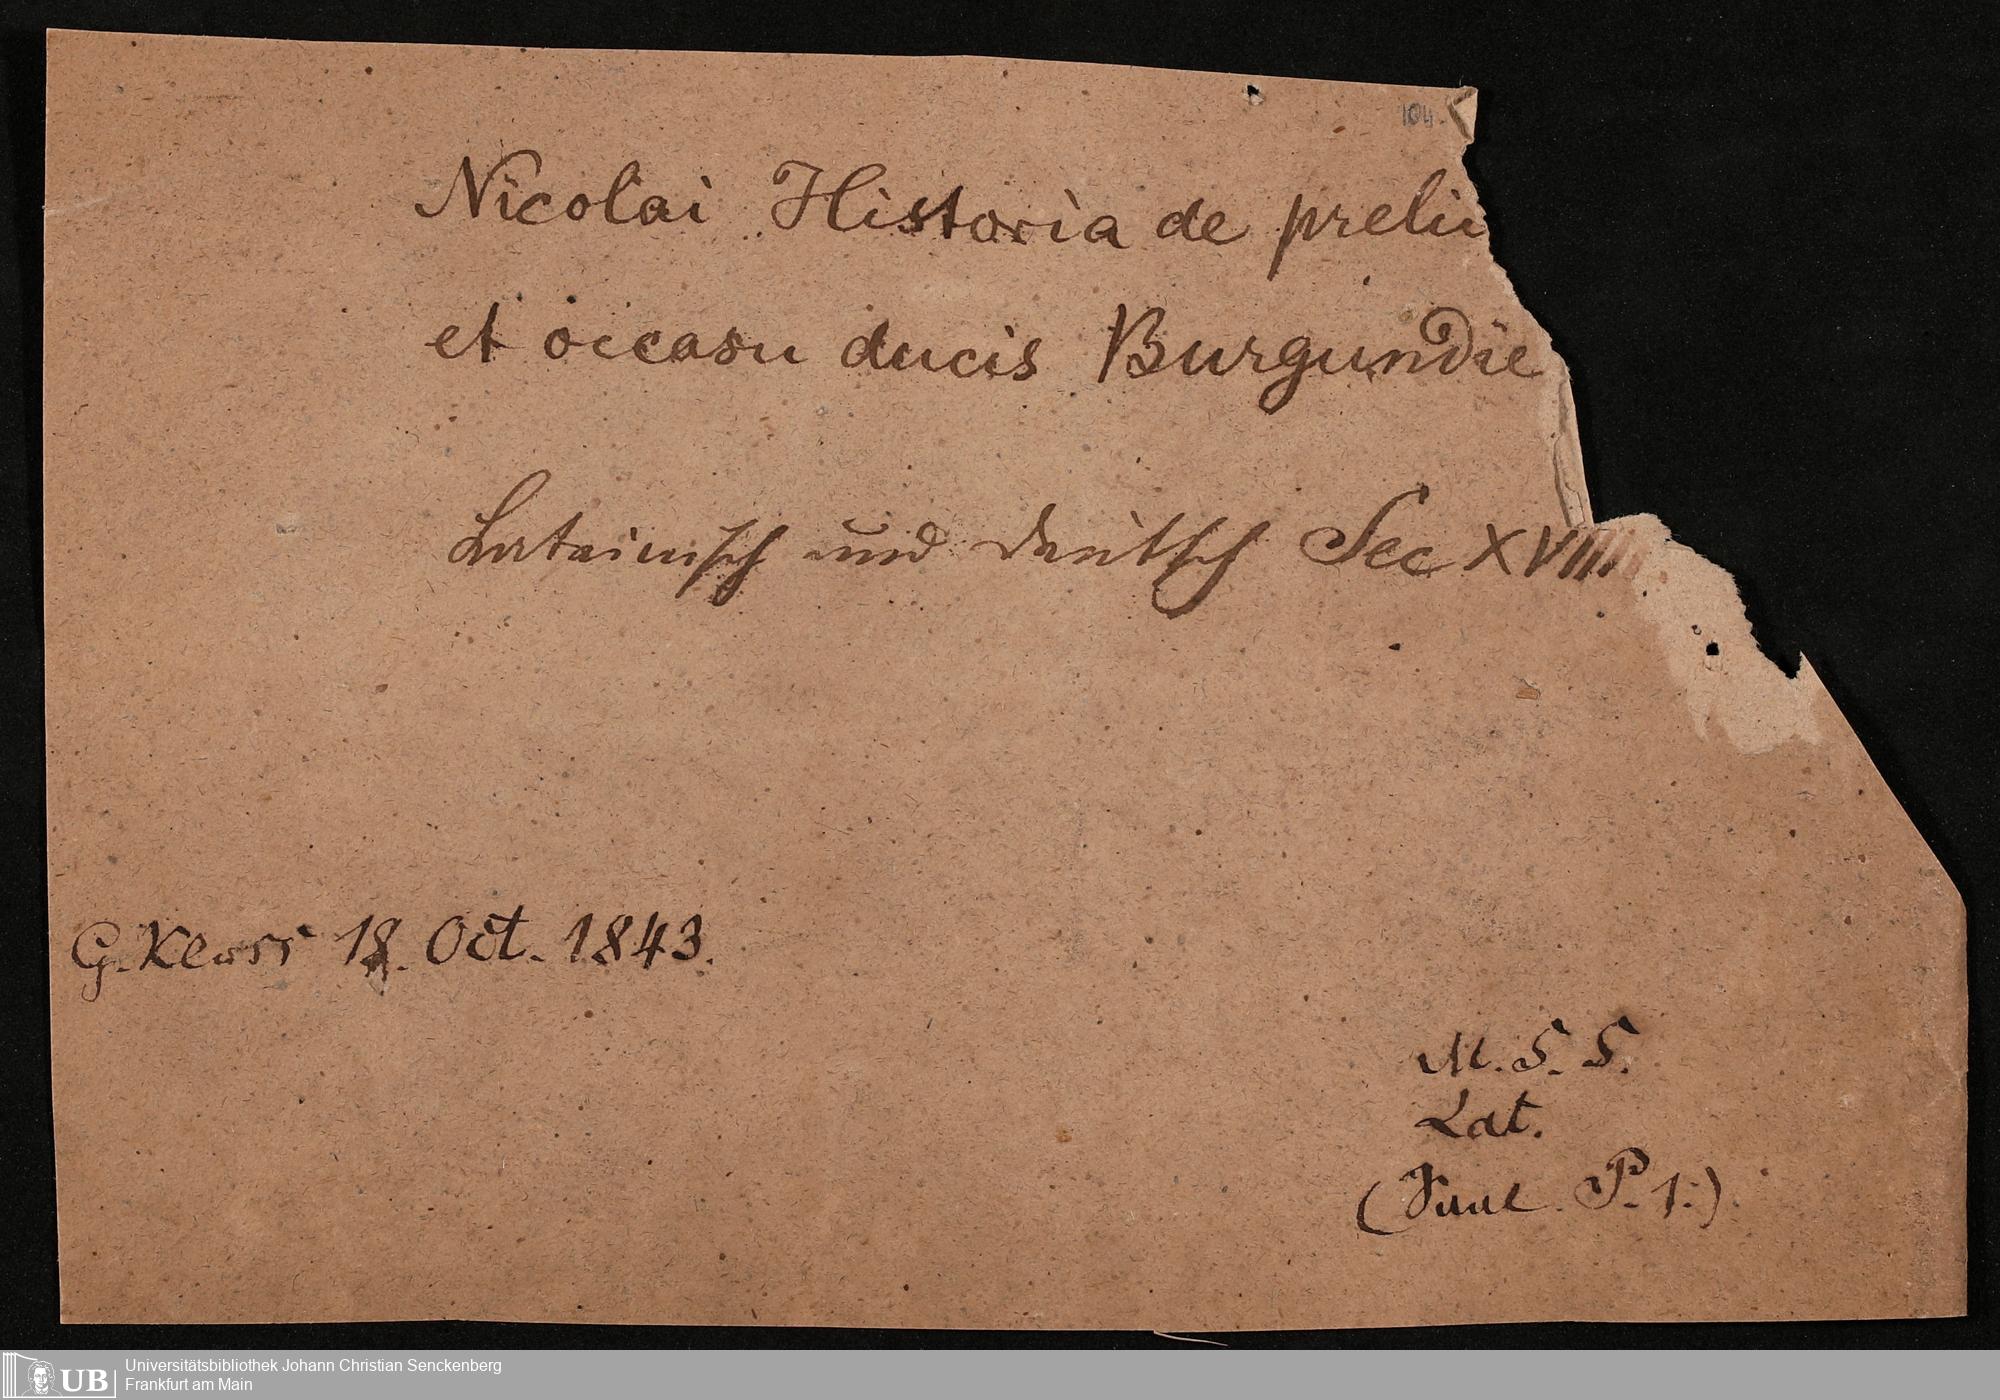 104.
Nicolai Historia de preliis
et occasu ducis Burgundie
Lateinisch und deutsch Sec XVIII
G. Kloss 18. Oct. 1843.
M. S. S.
Lat.
P. 1.)
Universitätsbibliothek Johann Christian Senckenberg
UB Frankfurt am Main